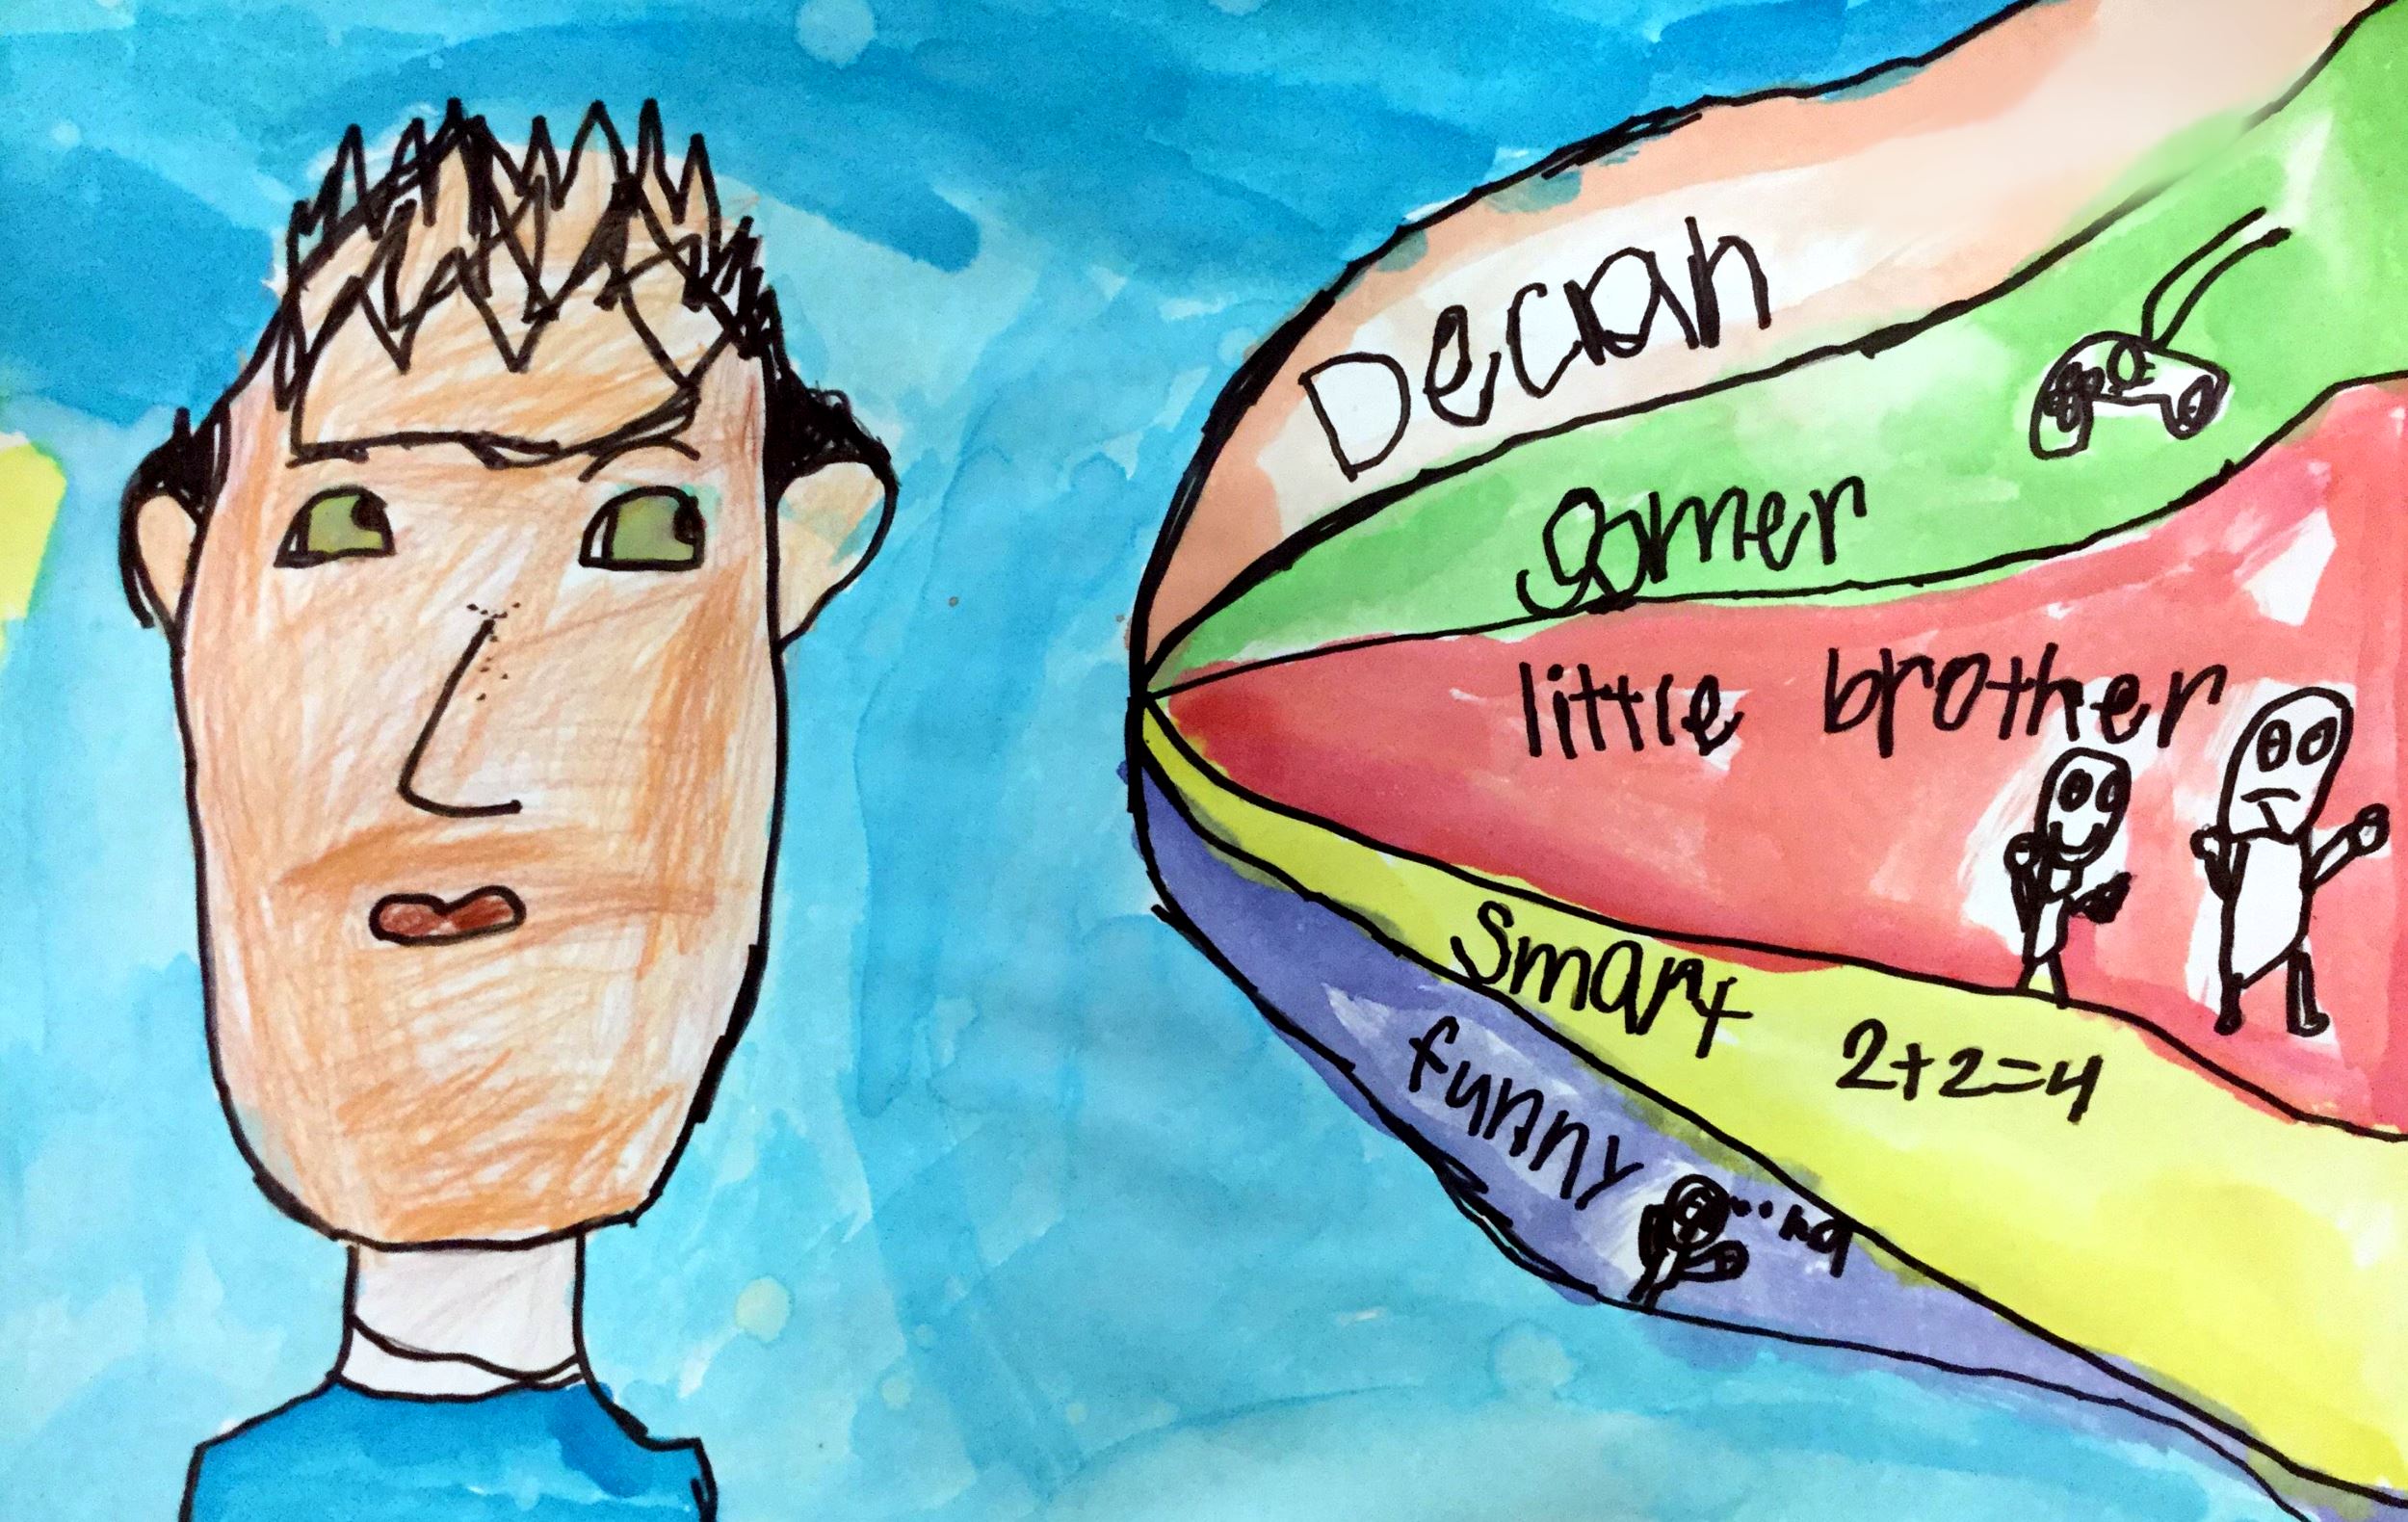 Declan
gamer
little brother
smart 2+2=4
funny
ha